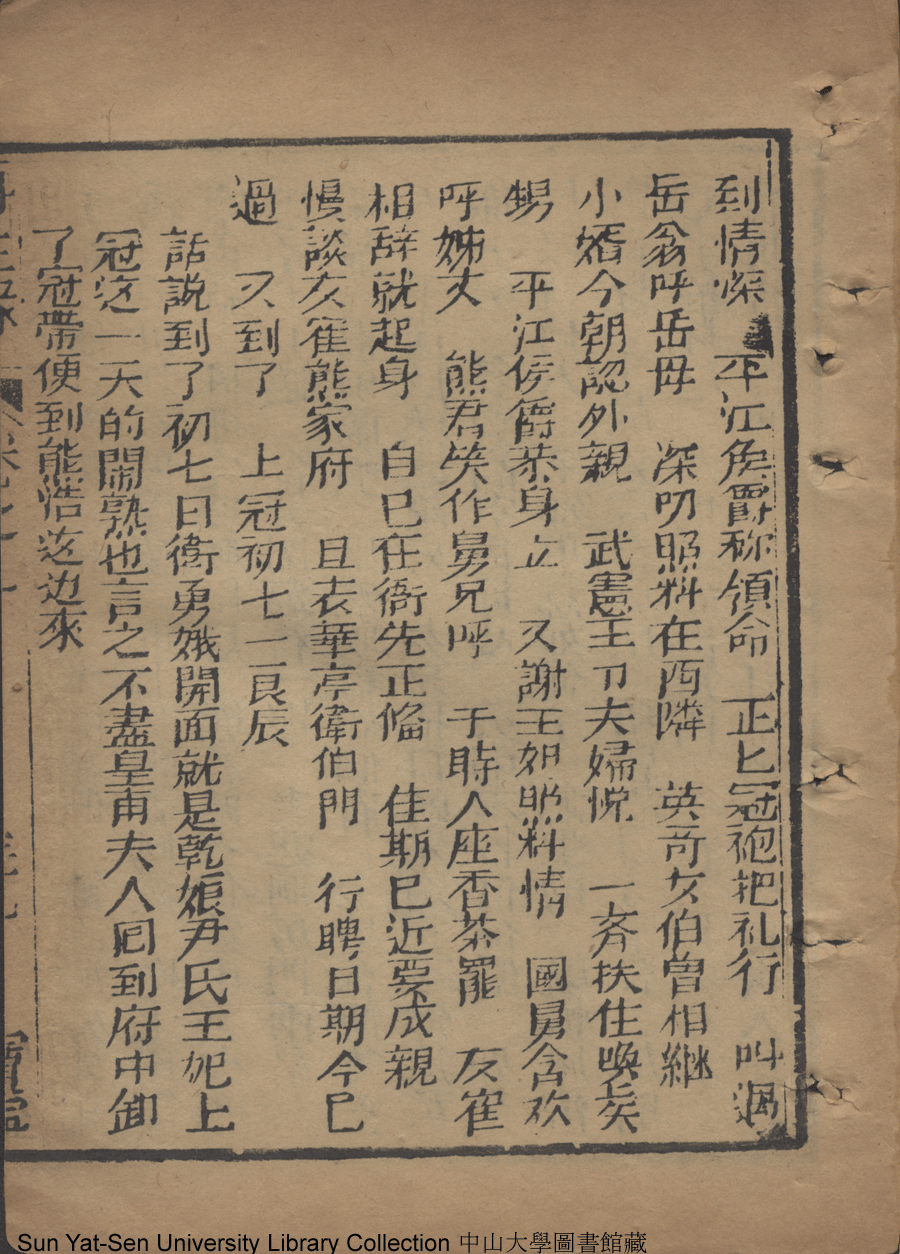 到情深 平江侯爵称領命 正匕冠袍把礼行 叫過
岳翁呼岳母 深叨照料在西隣 英哥女伯曾相継
小婿今朝認外親 武憲王刀夫婦悦 一斉扶住喚矣
甥 平江侯爵恭身立 又謝王妃照料情 國舅含欢
呼姊丈 熊君笑作舅兄呼 于時人座香茶罷 友崔
相辞就起身 自已在衙先正脩 佳期已近要成親
慢談友崔熊家府 且表華亭衛伯門 行聘日期今已
過 又到了 上冠初七一良辰
話說到了初七日衛勇娥開面就是乾娘尹氏王妃上
冠这一天的閙熟也言之不盡皇甫夫人囘到府中卸
了冠帶便到能浩这边來
再生緣 卷之十
寶寧
Sun Yat-Sen University Library Collection 中山大學圖書館藏